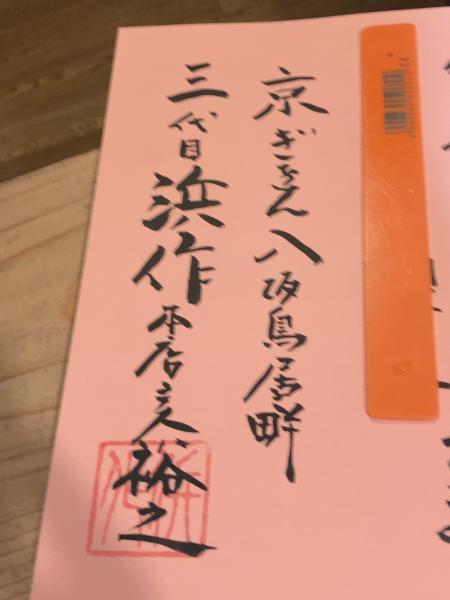 京ぎをん八坂鳥居畔
三代目浜作本店主人裕之